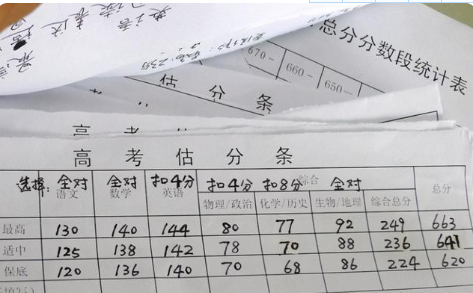 总分分数段统计表
670-
660-
650-
估 分 条
高 考
高 考 估 分 条
选择: 全对 全对 扣4分 扣4分 扣8分 全对
语文 数学 英语 综合 总分
物理/政治 化学/历史 生物/地理 综合总分
最高 130 140 144 80 77 92 249 663
适中 125 138 142 78 70 88 236 641
保底 120 136 140 70 68 86 224 620